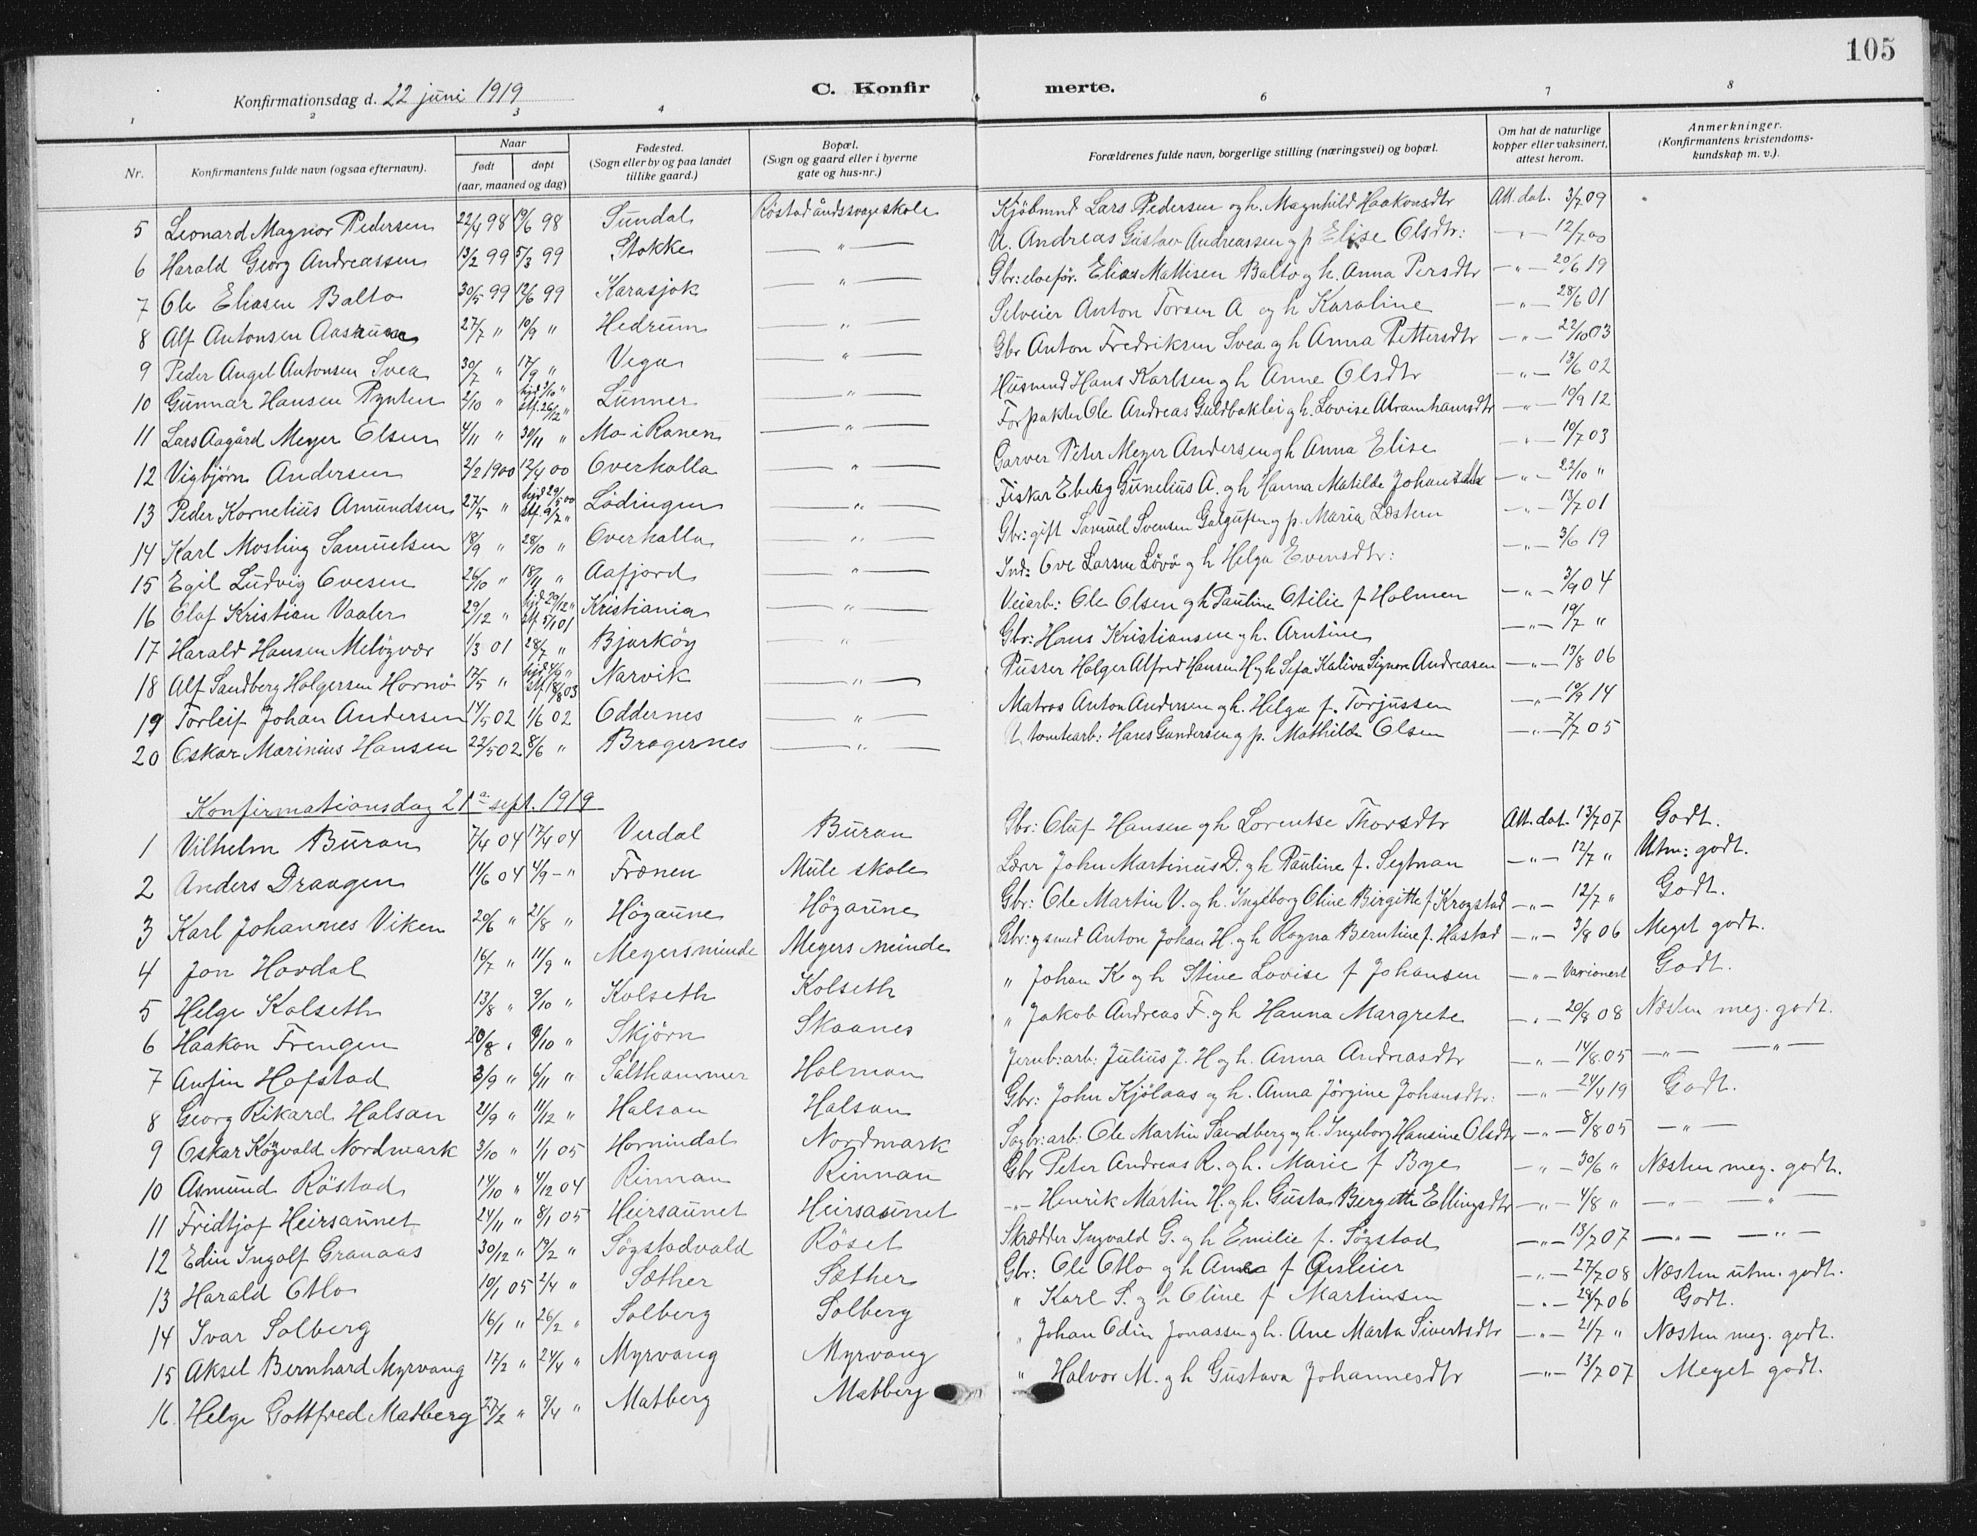 105
Konfirmationsdag d. 22 juni 1919 C. Konfirmerte.
1 2 3 4 6 7 8
Nr. Konfirmantens fulde navn (ogsaa efternavn). Naar født døpt (aar, maaned og dag) Fødested. (Sogn eller by og paa landet tillike gaard.) Bopæl. (Sogn og gaard eller i byerne gate og hus-nr.) Forældrenes fulde navn, borgerlige stilling (næringsvei) og bopæl. Om hat de naturlige kopper eller vaksinert, attest herom. Anmerkninger. (Konfirmantens kristendomskundskap m. v.).
5 Leonard Magnor Pedersen 22/4 98 19/6 98 Sundal Röstad åndssvageskole Kjöbmnd Lars Pedersen og h. Magnhild Haakonsdtr Att. dat. 3/7 09
6 Harald Georg Andreassen 13/2 99 5/3 99 Stokke — " — U. Andreas Gustav Andreassen og p Elise Olsdtr: — " — 12/7 00
7 Ole Eliasen Balto 30/5 99 12/6 99 Karasjok — " — Gbr: elvefør. Elias Mattisen Balto og h. Anna Persdtr — " — 20/6 19
8 Alf Antonsen 27/7 " 10/9 " Hedrum — " — Selveier Anton Torsen A og h Karoline — " — 28/6 01
9 Peder Angel Antonsen Svea 30/7 " 17/9 " Vega — " — Gbr Anton Fredriksen Svea og h Anna Pettersdtr — " — 22/10 03
10 Gunnar Hansen Pynten 2/10 " hjd 3/10 " stf. 26/12 " Lunner — " — Husmnd Hans Karlsen og h Anne Olsdtr — " — 13/6 02
11 Lars Aagård Meyer Olsen 4/11 " 30/11 " Mo i Ranen — " — Forpakter Ole Andreas Guldbaklei og h. Lovise Abramhamsdtr — " — 10/9 12
12 Vigbjörn Andersen 2/2 1900 12/4 00 Overhalla — " — Garver Peter Meyer Andersen og h Anna Elise — " — 10/7 03
13 Peder Kornelius Amundsen 27/5 " hjd 29/5 00 stf. 9/7 " Lödingen — " — Fisker Eberg Gunelius A. og h Hanna Matilde — " — 22/10 "
14 Karl Mosling Samuelsen 18/9 " 28/10 " Overhalla — " — Gbr: gift Samuel Svensen og p. Maria — " — 13/7 01
15 Egil Ludvig Ovesen 26/10 " 18/11 " Aafjord — " — Ind: Ove Larsen Lövö og h Helga Evensdtr: — " — 3/6 19
16 Olaf Kristian Vaaler 29/12 " hjd 29/12 " stf 5/1 01 Kristiania — " — Veiarb: Ole Olsen og h Pauline Otilie f Holmen — " — 3/9 04
17 Harald Hansen Melögvær 1/3 01 28/7 " Bjarköy — " — Gbr: Hans Kristiansen og h. Arntine — " — 19/7 "
18 Alf Sandberg Holgersen Hornö 17/5 " Narvik — " — Pusser Holger Alfred Hansen H og h Sefa Kaliva Signora Andreasen — " — 13/8 06
19 Torleif Johan Andersen 14/5 02 1/6 02 Oddernes — " — Matros Anton Andersen og h. Helga f. Torjussen — " — 10/9 14
20 Oskar Marinius Hansen 22/5 02 8/6 " Bragernes — " — U. tomtearb: Hans Gundersen og p. Mathilde Olsen — " — 7/7 05
Konfirmationsdag 21 sept. 1919
1 Vilhelm Buran 7/4 04 17/4 04 Verdal Buran Gbr: Oluf Hansen og h Lorentse Thorsdtr Att. dat. 13/7 07 Godt.
2 Anders Draagen 11/6 04 4/9 — " Frænen Mule skole Lærer John Martinius D. og h Pauline f. Segtnan — " — 12/7 " Utm: godt.
3 Karl Johannes Viken 20/6 " 21/8 " Högaune Högaune Gbr: Ole Martin V. og h. Ingeborg Oline Birgitte f Krogstad — " — 12/7 " Godt.
4 Jon Hovdal 16/7 " 11/9 " Meyersminde Meyers minde Gbr: og smed Anton Johan H. og h Ragna Berntine f. Hastad — " — 3/8 06 Meget godt.
5 Helge Kolseth 13/8 " 9/10 " Kolseth Kolseth " Johan K og h Stine Lovise f Johansen — " — Varionert Godt.
6 Haakon Frengen 20/8 " 9/10 " Skjörn Skaanes " Jakob Andreas F. og h Hanna Margrete — " — 20/8 08 Næsten meg. godt.
7 Anfin Hofstad 3/9 " 6/11 " Salthammer Holman Jernb: arb: Julius J. H og h. Anna Andreasdtr — " — 14/8 05 — " — — " —
8 Georg Rikard Halsan 21/9 " 11/12 " Halsan Halsan Gbr: John Kjölaas og h. Anna Jörgine Johansdtr: — " — 24/4 19 Godt.
9 Oskar Köyvald Nordmark 3/10 " 1/1 05 Hornindal Nordmark Sagbr: arb: Ole Martin Sandberg og h. Ingeborg Hansine Olsdtr — " — 8/8 05 — " —
10 Asmund Röstad 14/10 " 4/12 04 Rinnan Rinnan Gbr Peter Andreas R. og h. Marie f Bye — " — 30/6 " Næsten meg. godt.
11 Fridtjof Heirsaunet 24/11 " 8/1 05 Heirsaunet Heirsaunet — " — Henrik Martin H. og h. Gusta Bergitte Ellingsdtr — " — 4/8 " — " —
12 Edin Ingolf Granaas 30/12 " 19/2 " Sögstadvald Röset Skrædder Ingvald G. og h Emilie f. Sögstad — " — 13/7 07 — " — — " —
13 Harald Otlo 10/1 05 2/4 " Sæther Sæther Gbr: Ole Otlo og h Anna f Qvisleier — " — 27/7 08 Næsten utm. godt.
14 Ivar Solberg 16/1 " 26/2 " Solberg Solberg " Karl S. og h Oline f Martinsen — " — 29/7 06 Godt.
15 Aksel Bernhard Myrvang 17/2 " 24/4 " Myrvang Myrvang " Johan Odin Jonassen og h. Ane Marta Sivertsdtr — " — 21/7 " Næsten meg. godt.
16. Helge Gottfred Matberg 27/2 " 9/4 " Matberg Matberg " Halvor M. og h Gustava Johannesdtr — " — 13/7 07 Meget godt.